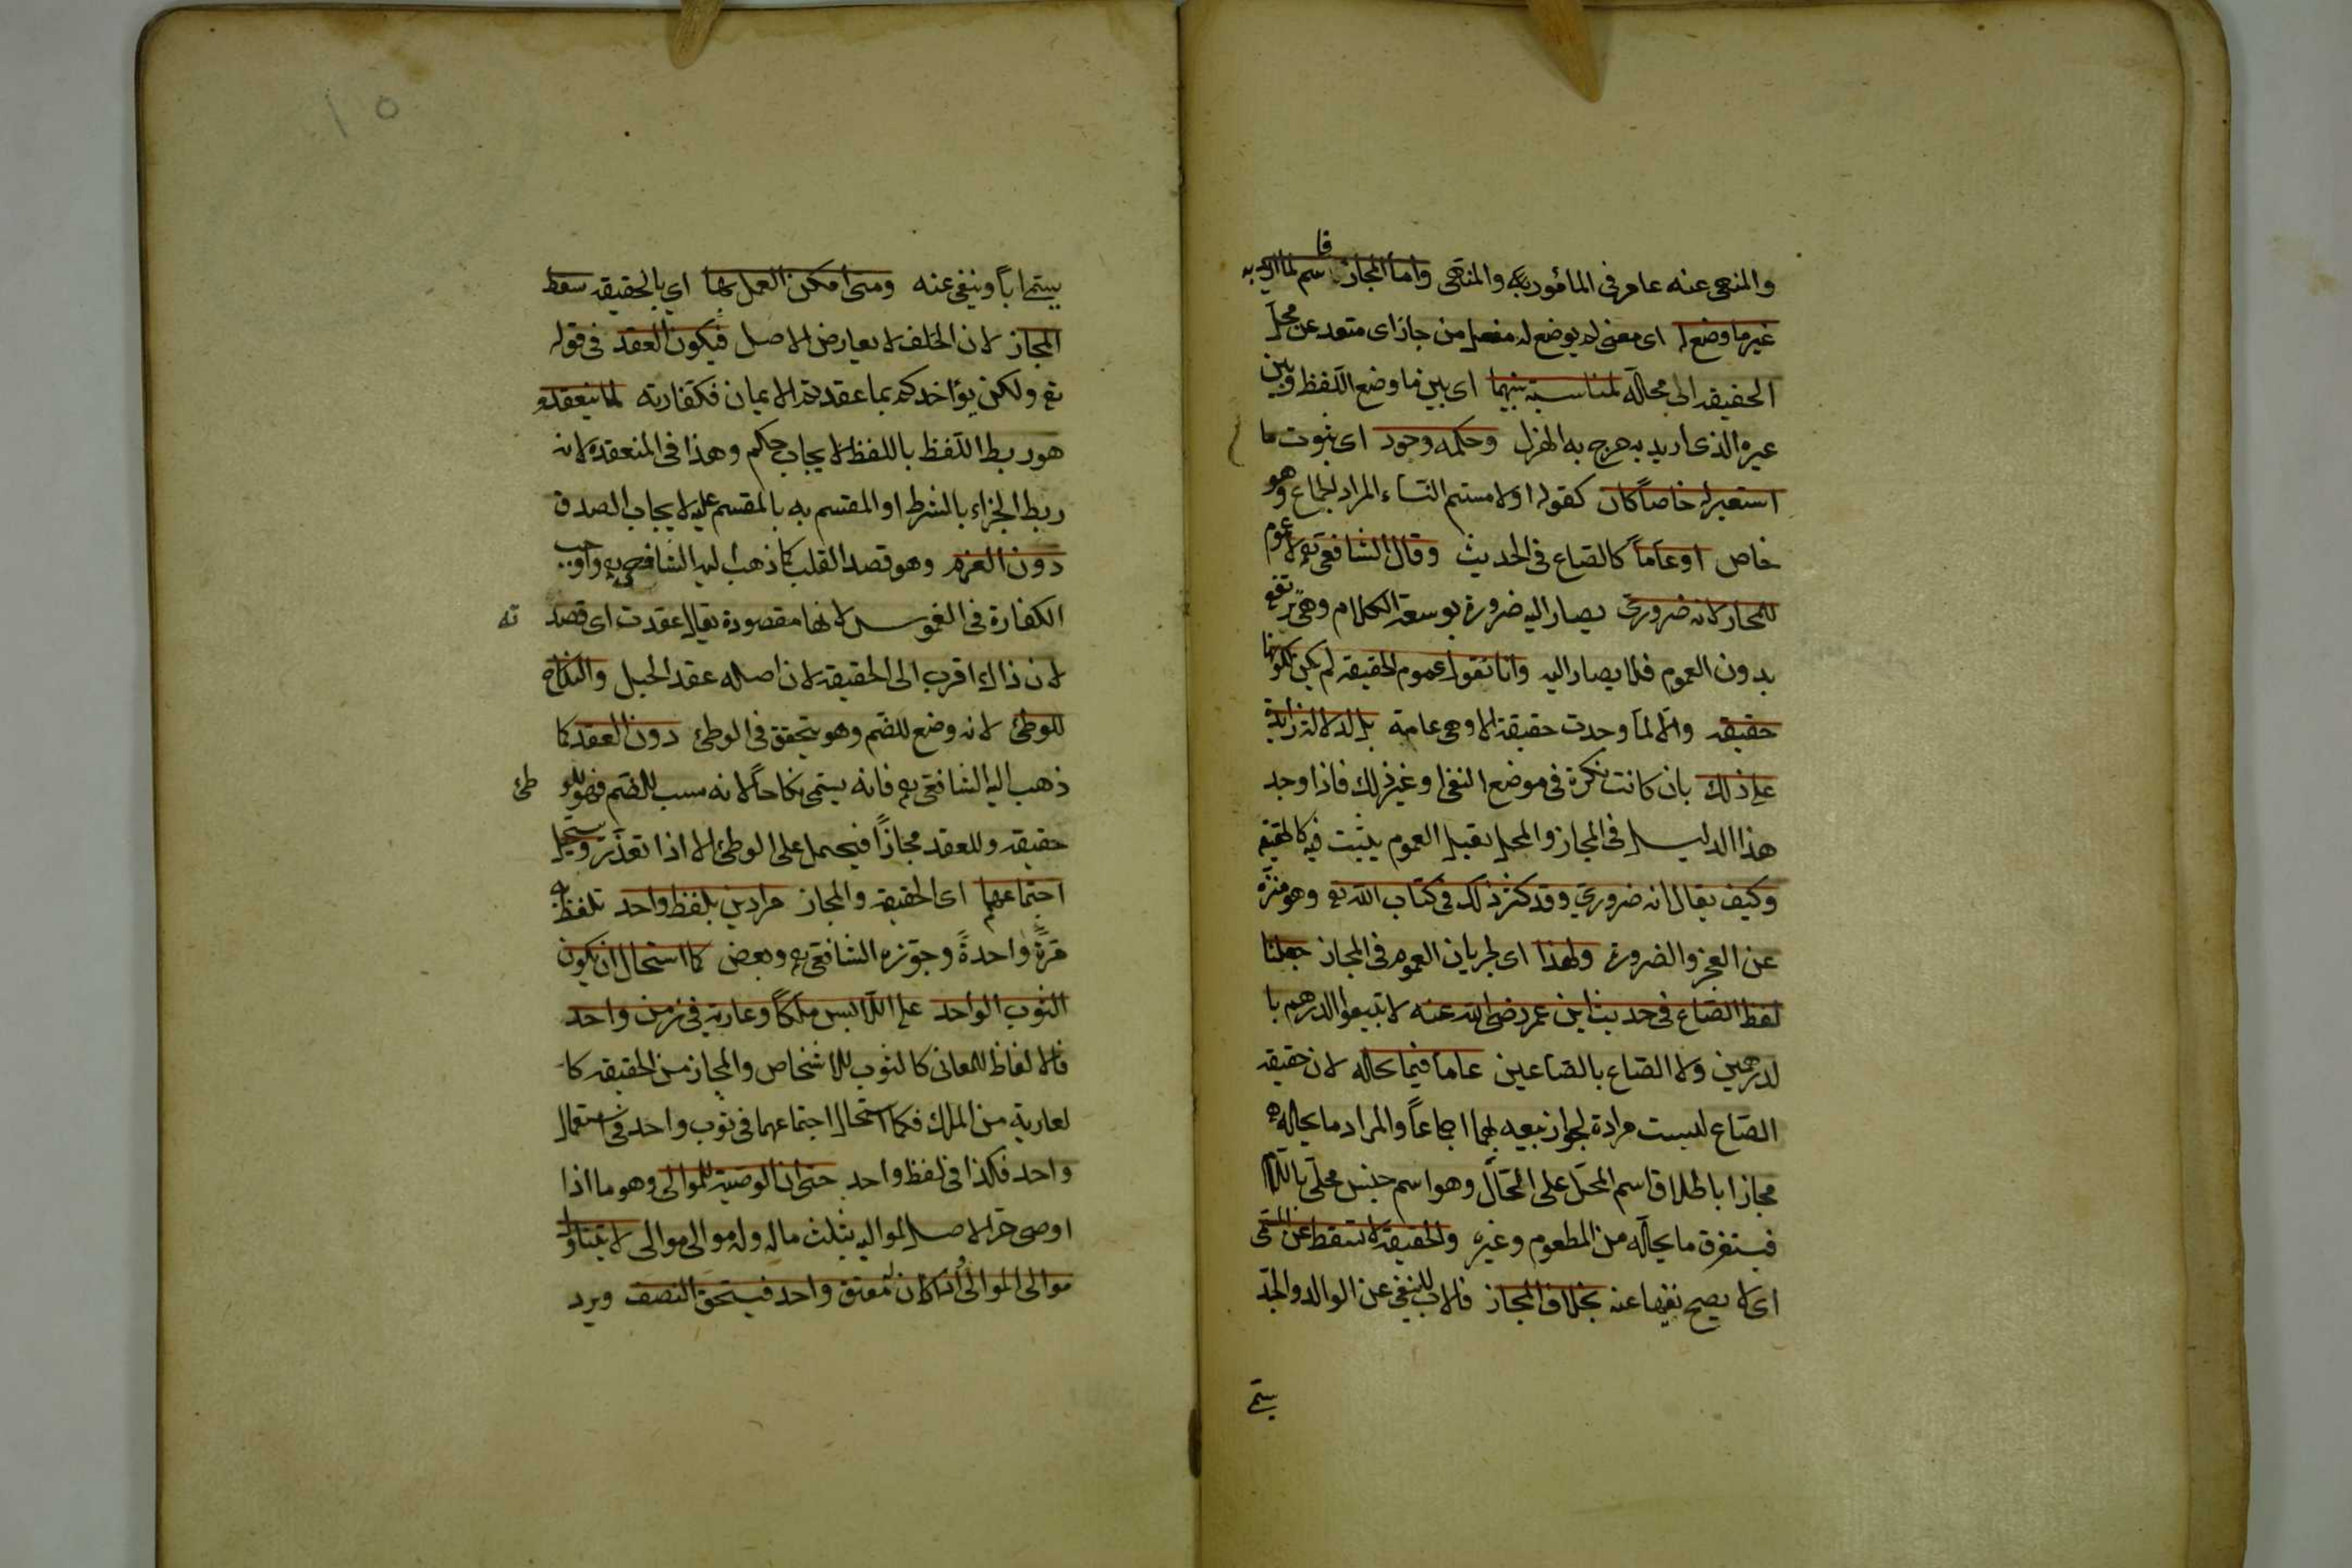 والمنهى عنه عام فى المأمور به والمنهى واما المجاز فاسم لما اريد به
غير ما وضع له اى معنى لم يوضع له مفعل من جاز اى متعد عن محل
الحقيقه الى محاله لمناسبة بينهما اى بين ما وضع اللفظ وبين
غيره الذى اريد به خرج به الهزل وحكمه وجود اى ثبوت ما
استعير له خاصاً كان كقوله او لامستم النساء المراد الجماع وهو
خاص او عاماً كالصاع فى الحديث وقال الشافعى لا عموم
للمجاز لانه ضرورى يصار اليه ضرورة توسعة الكلام وهى ترتفع
بدون العموم فلا يصار اليه وانا نقول عموم الحقيقه لم يكن لكونها
حقيقه والا لما وجدت حقيقة الا وهى عامة بل لدلالة زايدة
على ذلك بان كانت نكرة فى موضع النفى او غير ذلك فاذا وجد
هذا الدليل فى المجاز والمحل يقبل العموم يثبت فيه كالحقيقه
وكيف يقال انه ضرورى وقد كثر ذلك فى كتاب الله تع وهو منزه
عن العجز والضرورة ولهذا اى لجريان العموم فى المجاز جعلنا
لفظ الصاع فى حديث ابن عمر رضى الله عنه لا تبيعوا الدرهم با
لدرهمين ولا الصاع بالصاعين عاما فيما يحله لان حقيقه
الصاع ليست مرادة لجواز بيعه بهما اجماعاً والمراد ما يحاله
مجازا باطلاق اسم المحل على الحال وهو اسم جنس محلى باللام
فيستغرق ما يحاله من المطعوم وغيره والحقيقة لا تسقط عن المسمى
اى لا يصح نفيها عنه بخلاف المجاز فالاب لا ينفى عن الوالد والجد
يسمى
١٥
يسمى اباً وينفى عنه ومتى امكن العمل بها اى بالحقيقه سقط
المجاز لان الخلف لا يعارض الاصل فيكون العقد فى قوله
تع ولكن يؤاخذكم بما عقدتم الايمان فكفارته لما ينعقد و
هو ربط اللفظ باللفظ لايجاب حكم وهذا فى المنعقدة لانه
ربط الجزاء بالشرط او المقسم به بالمقسم عليه لايجاب الصدق
دون العزم وهو قصد القلب كما ذهب اليه الشافعى واوجب
الكفارة فى الغموس لانها مقصودة يقال عقدت اى قصد ته
لان ذالك اقرب الى الحقيقة لان اصله عقد الحبل والنكاح
للوطئ لانه وضع للضم وهو يتحقق فى الوطئ دون العقد كما
ذهب اليه الشافعى فانه يسمى نكاحاً لانه سبب للضم فهو للو طئ
حقيقه وللعقد مجازاً فيحمل على الوطئ الا اذا تعذر ويستحيل
اجتماعهما اى الحقيقه والمجاز مرادين بلفظ واحد تلفظ به
مرةً واحدةً وجوّزه الشافعى وبعض كما استحال ان يكون
الثوب الواحد على اللابس ملكاً وعارية فى زمن واحد
فالالفاظ للمعانى كالثوب للاشخاص والمجاز من الحقيقه كا
لعارية من الملك فكما استحال اجتماعهما فى ثوب واحد فى استعمال
واحد فكذا فى لفظ واحد حتى ان الوصية للموالى وهو ما اذا
اوصى حر الاصل لمواليه بثلث ماله وله موالى موالى لا يتناول
موالى الموالى واذا كان له معتق واحد فيستحق النصف ويرد